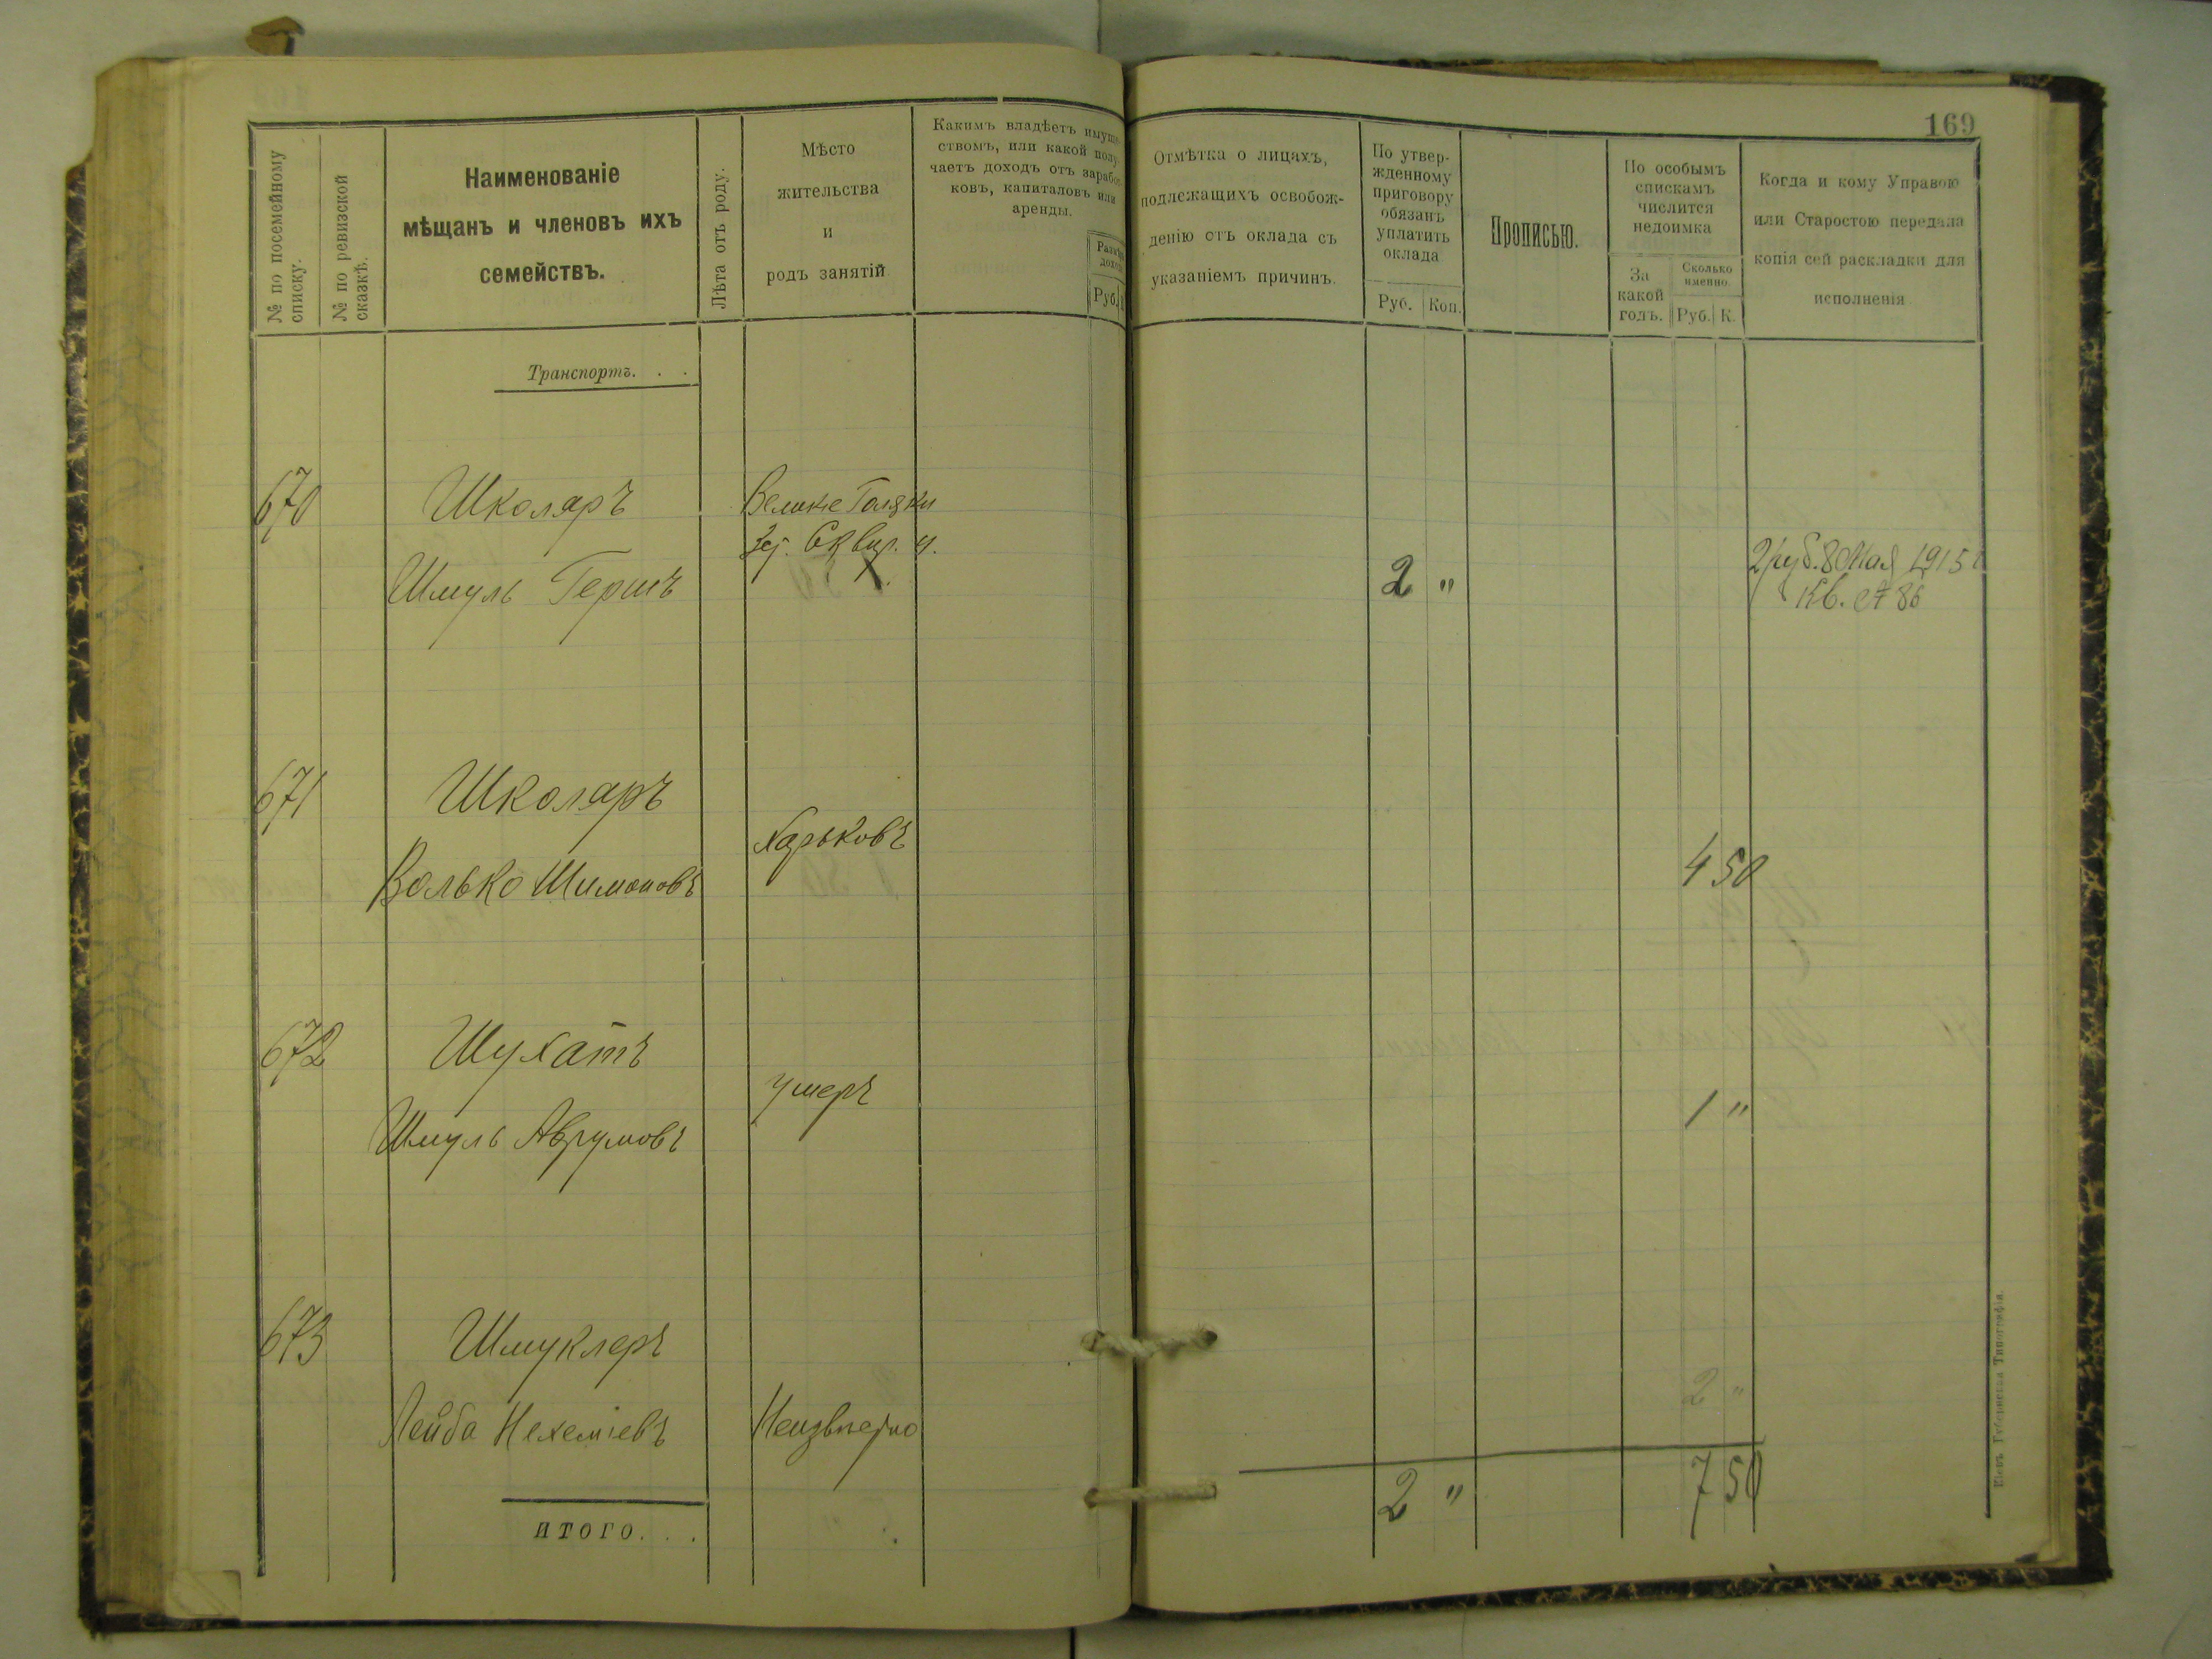 169
№ по посемейному
списку.
№ по ревизской
сказкѣ.
Наименованіе
мѣщанъ и членовъ ихъ
семействъ.
Лѣта отъ роду.
Мѣсто
жительства
и
родъ занятій
Какимъ владѣетъ имуще-
ствомъ, или какой полу-
чаетъ доходъ отъ зарабо-
ковъ, капиталовъ или
аренды.
Руб.
Отмѣтка о лицахъ,
подлежащихъ освобож-
денію отъ оклада съ
указаніемъ причинъ.
По утвер-
жденному
приговору
обязанъ
уплатить
оклада
Руб. Коп.
Прописью.
По особымъ
спискамъ
числится
недоимка
За
какой
годъ.
Сколько
именно.
Руб. К.
Когда и кому Управою
или Старостою передана
копія сей раскладки для
исполненія
Транспортъ. . .
670 Школяръ
Шмуль Гершъ
Сквир. у.
2 "
2 руб. 8 Мая 1915 г
Кв. № 86
671 Школяръ
Волько Шимоновъ
Харьковъ
4 50
672 Шухатъ
Шмуль Аврумовъ
умеръ
1 "
673 Шмуклеръ
Лейба Нехеміевъ
Неизвѣстно
2 "
итого. . .
2 "
7 50
Кіевъ. Губернская Типографія.